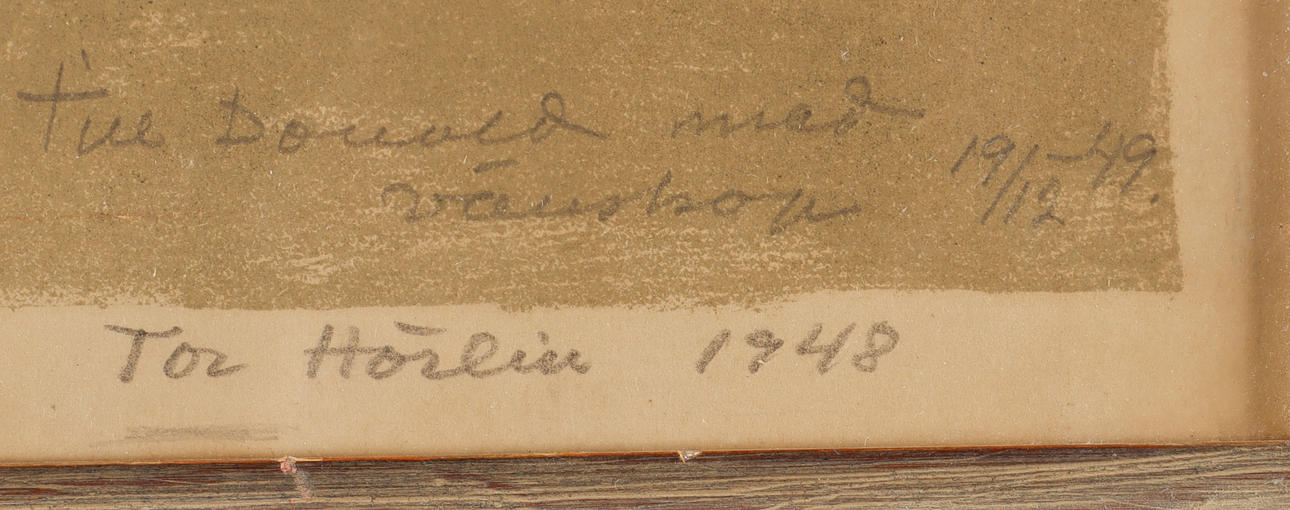 till Donald med
vänskap 19/12 -49.
Tor Hörlin 1948